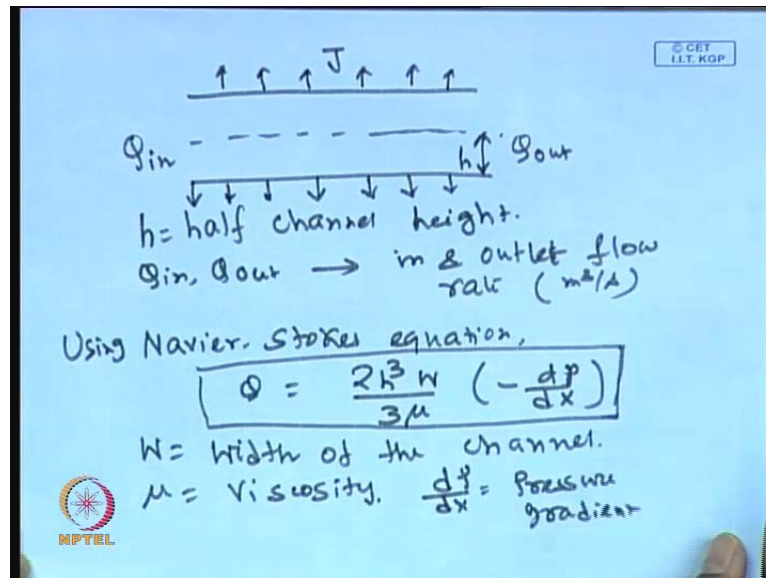 J
© CET
I.I.T. KGP
Qin
h
Qout
h = half channel height.
Qin, Qout → in & outlet flow
rate (m³/s)
Using Navier-Stokes equation,
Q = 2h³W/3μ (-dp/dx)
W = width of the channel.
μ = viscosity. dp/dx = Pressure
gradient
NPTEL